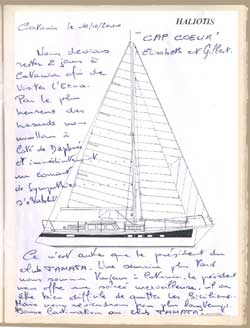 Catania le 10/10/2000
HALIOTIS
"CAP COEUR"
Elisabeth et Gilbert.
Nous devions
rester 2 jours à
Catane afin de
visiter l'Etna.
Par le plus
heureux des
hasards nous
mouillons à
côté de Daphnis
et immédiatement
un courant
de Sympathie
s'établit
Ce n'est autre que le président du
club TAMATA. Une semaine plus tard
nous sommes toujours à Catane, le président
nous offre une soirée merveilleuse, et on
être bien difficile de quitter les Siciliens.
Mais nous reviendrons pour plus longtemps.
Bonne continuation au club TAMATA.